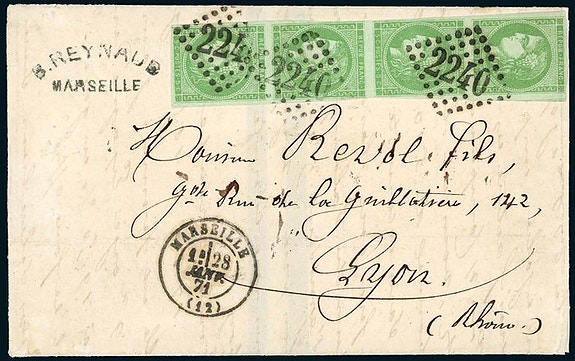 B. REYNAUD
MARSEILLE
224
2240
2240
Monsieur Revol fils,
Gde Rue de la Guillotière, 142,
Lyon.
(Rhône)
MARSEILLE
28
JANV.
71
(12)